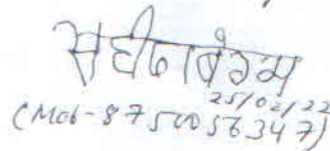 बेगम
25/02/22
(Mob-8750056347)